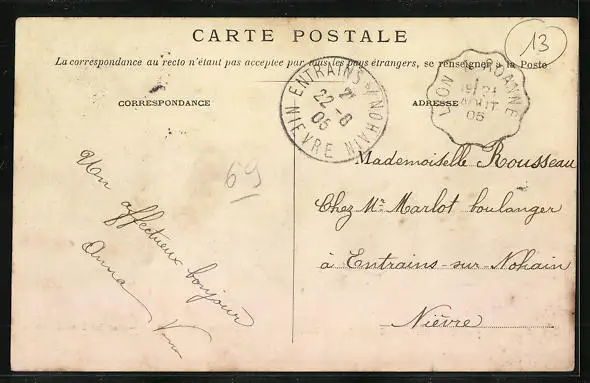 CARTE POSTALE
13
La correspondance au recto n'étant pas acceptée par tous les pays étrangers, se renseigner à la Poste
CORRESPONDANCE
ADRESSE
ENTRAINS-S-NOHAIN
NIÈVRE
22 -8
05
LYON A ROANNE
21
AOUT
05
69
Un affectueux bonjour
Anna
Mademoiselle Rousseau
Chez Mr Marlot boulanger
à Entrains-sur-Nohain
Nièvre